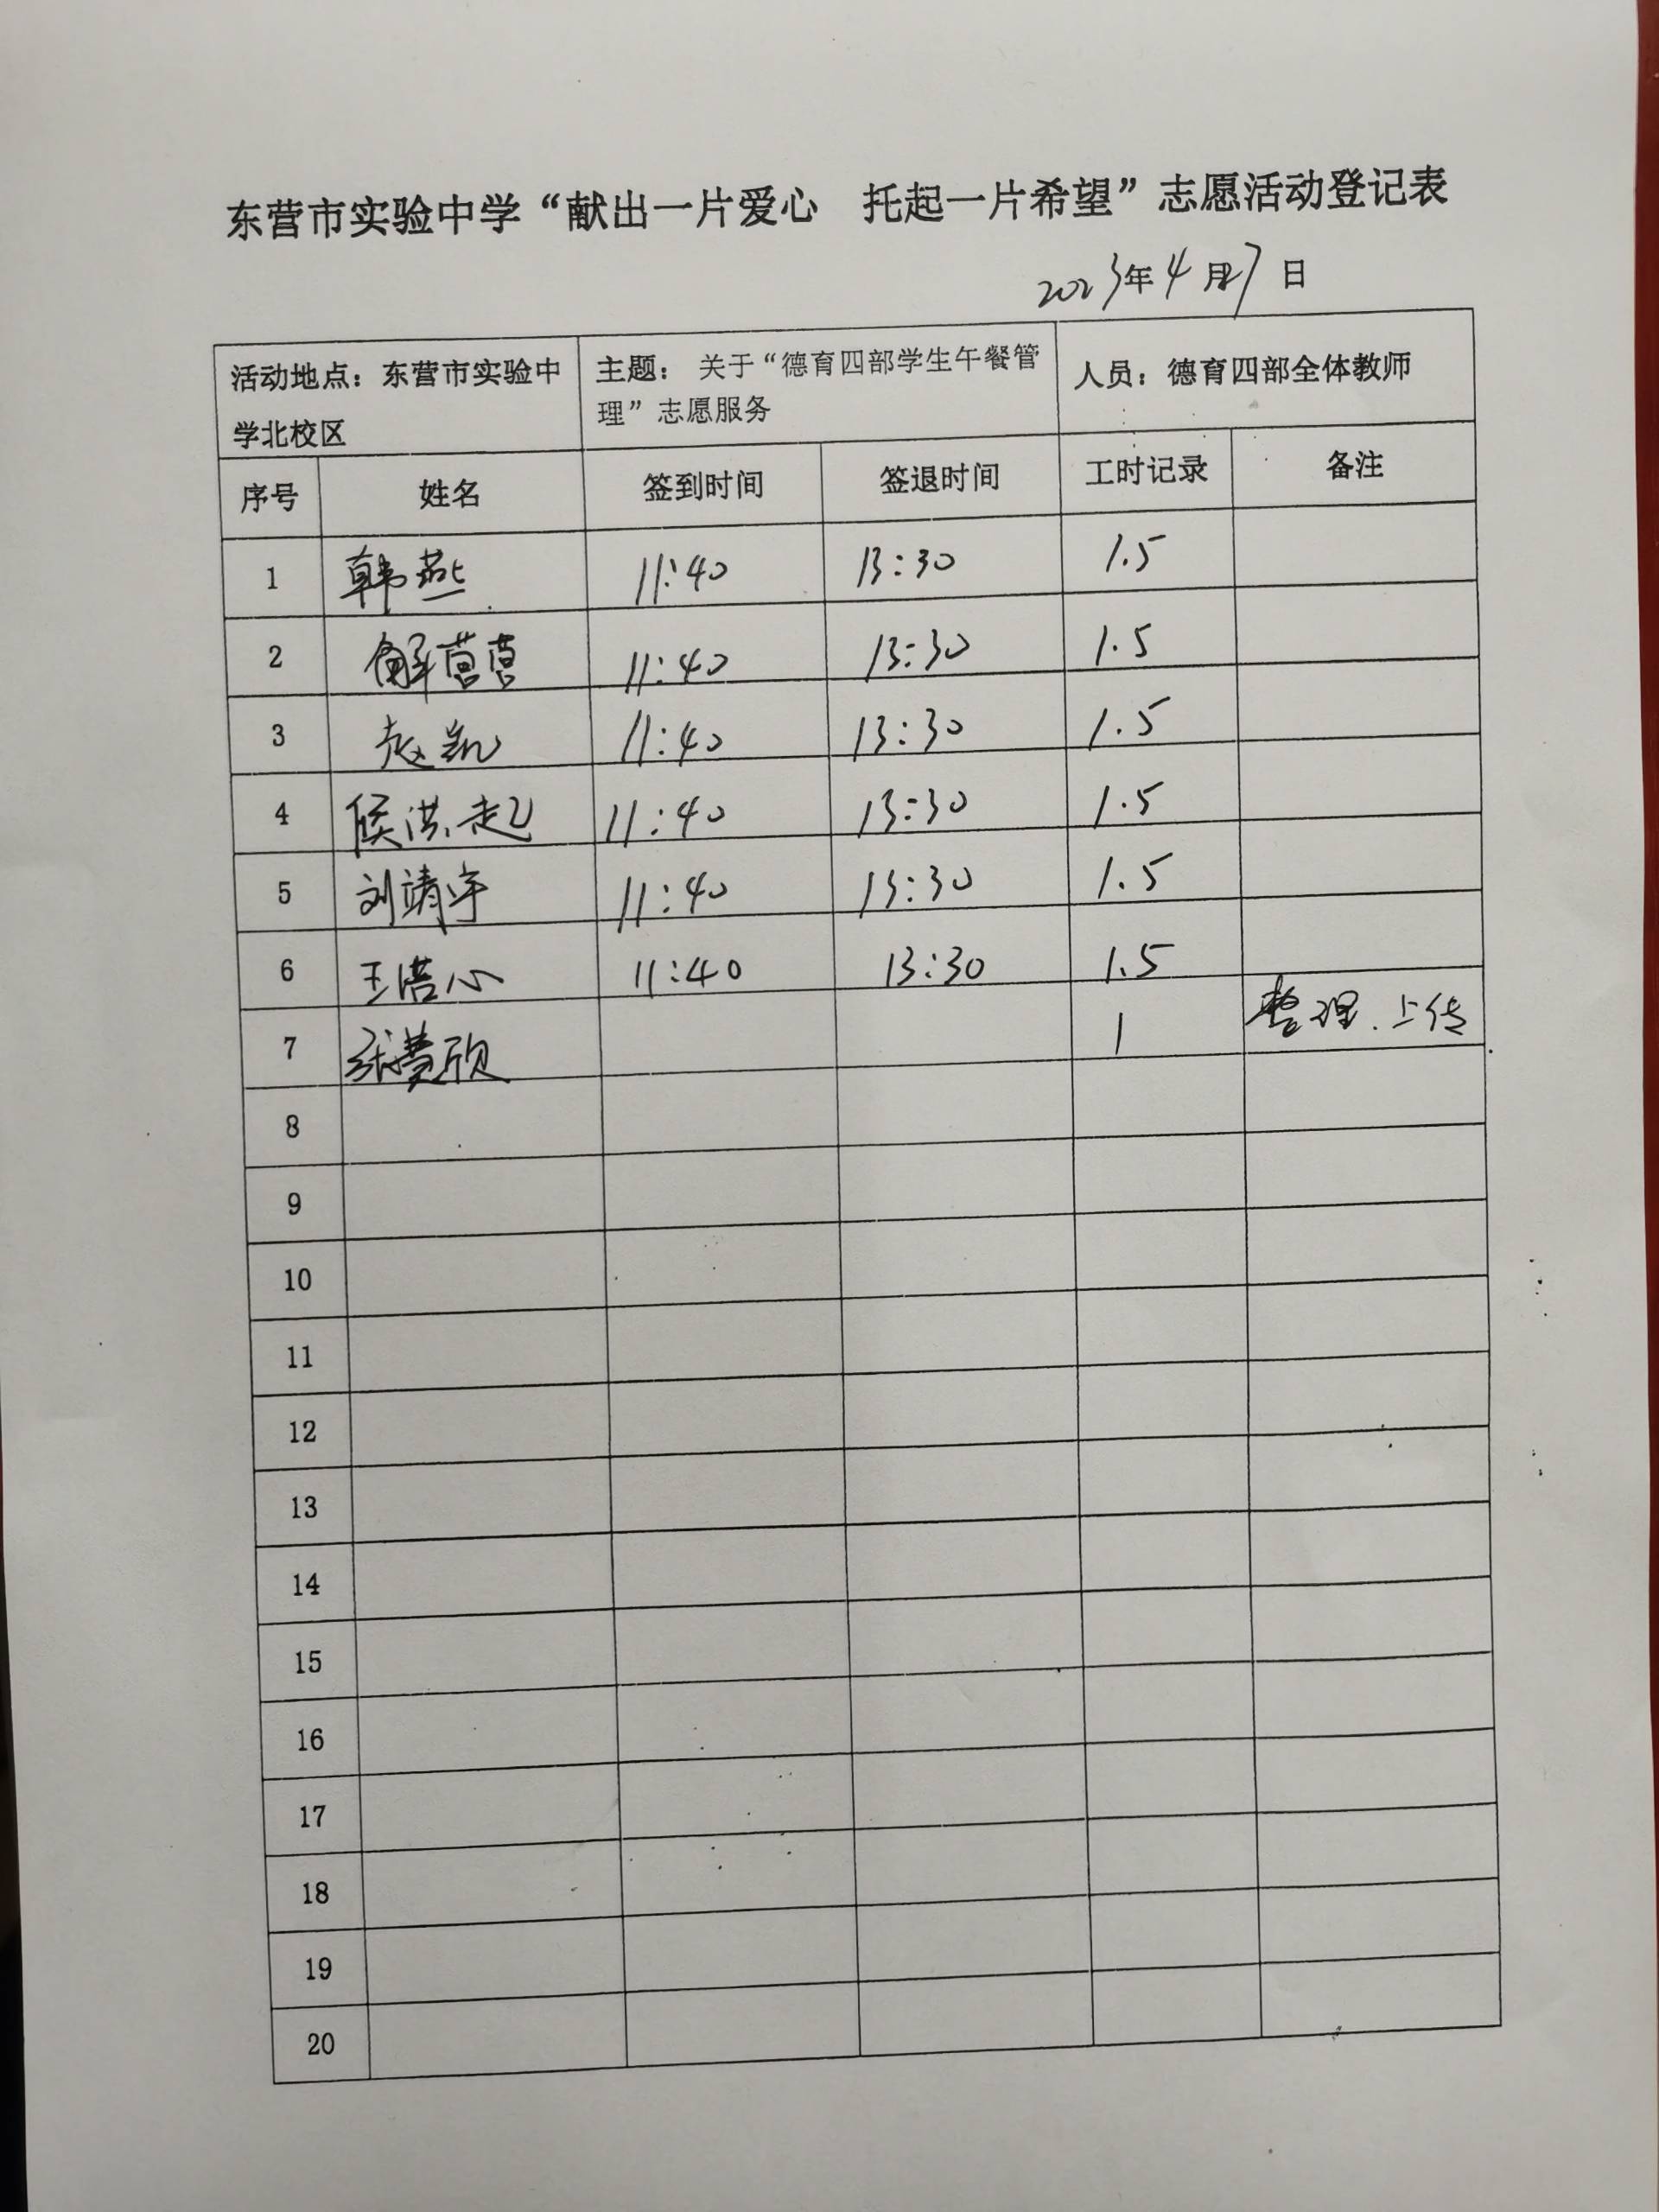 东营市实验中学“献出一片爱心 托起一片希望”志愿活动登记表
2023年4月27日
活动地点：东营市实验中
学北校区
主题： 关于“德育四部学生午餐管
理”志愿服务
人员：德育四部全体教师
序号 姓名 签到时间 签退时间 工时记录 备注
1 韩燕 11:40 13:30 1.5
2 解营营 11:40 13:30 1.5
3 赵凯 11:40 13:30 1.5
4 侯洪起 11:40 13:30 1.5
5 刘靖宇 11:40 13:30 1.5
6 王浩心 11:40 13:30 1.5
7 张欣 1 整理.上传
8
9
10
11
12
13
14
15
16
17
18
19
20